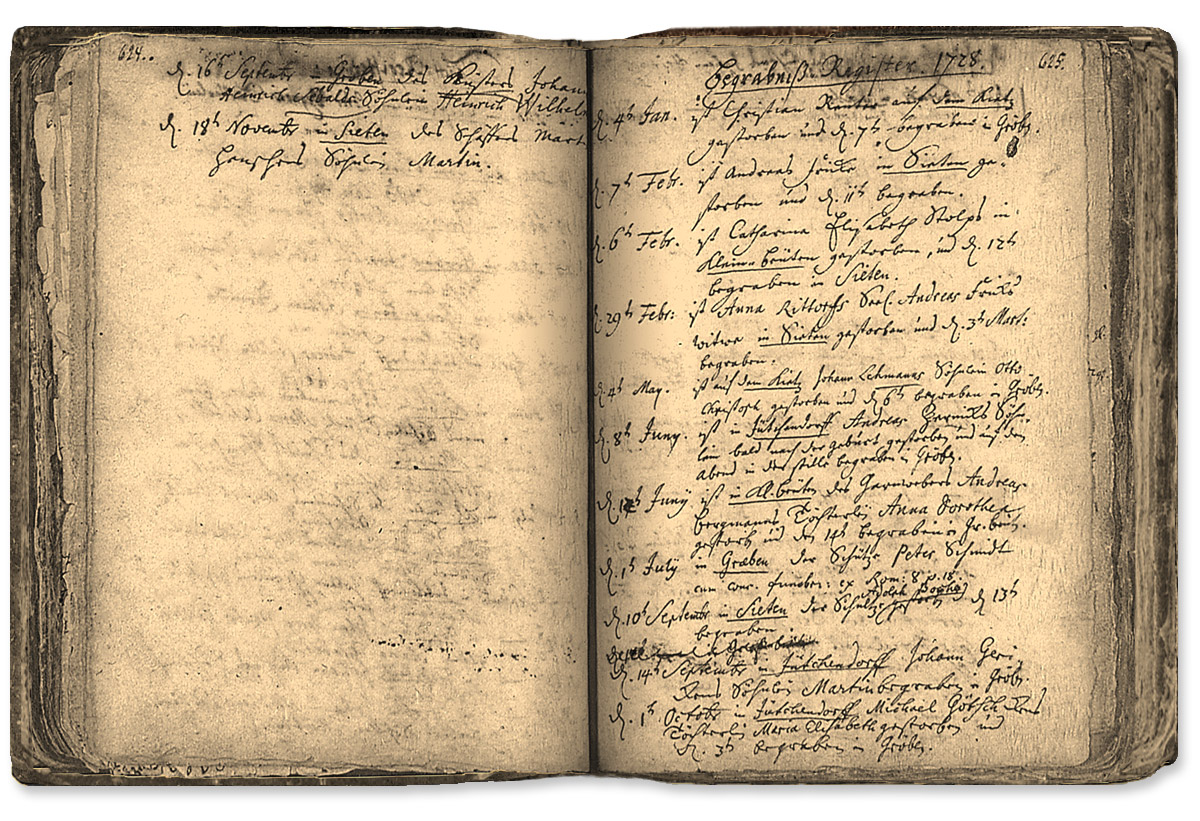 624.
d. 16t Septembr in Gröben des Küsters Johann
Heinrich Söhnlein Heinrich Wilhelm
d. 18t Novembr in Sieten des Schäffers Mart
Söhnlein Martin.
625.
Begräbniß Register. 1728.
d. 4t Jan. ist Christian Reuter auf dem Kietz
gestorben und d. 7t begraben in Gröb.
d. 7t Febr. ist Andreas Fricke in Sieten ge-
storben und d. 11t begraben.
d. 6t Febr. ist Catharina Elisabeth Stolps in
Klein-beuten gestorben, und d. 12t
begraben in Sieten.
d. 29t Febr: ist Anna Rittorffs Seel. Andreas Fricks
witwe in Sieten gestorben und d. 3t Mart:
begraben.
d. 4t May. ist auf dem Kietz Johann Lehmanns Söhnlein Otto
Christoph gestorben und d. 6t begraben in Gröb.
d. 8t Juny. ist in Jütchendorff Andreas Söhn-
lein bald nach der geburt gestorben und auf den
abend in der stille begraben in Gröb.
Juny ist in Kl. beuten des Garnwebers Andreas
Bergmanns Töchterlein Anna Dorothea
gestorb und den 14t begraben in Gr. beut.
d. 1t July in Græben der Schütze Peter Schmidt
cum conc. funebr: ex Rom: 8 p. 18.
d. 10t Septembr in Sieten der Schultz Adolph d 13t
begraben
d. 14t Septembr in Jütchendorff Johann Geri-
Söhnlein Martin begraben in Gröb.
d. 1t Octobr in Jütchendorff Michael
Töchterlein Maria Elisabeth gestorben und
d. 3t begraben in Gröb.